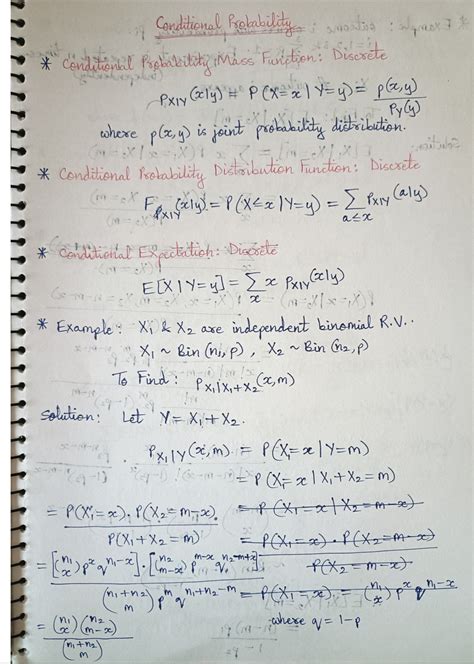 Conditional Probability
* Conditional Probability Mass Function: Discrete
P_{X|Y}(x|y) = P(X=x | Y=y) = p(x,y) / P_Y(y)
where p(x,y) is joint probability distribution.
* Conditional Probability Distribution Function: Discrete
F_{X|Y}(x|y) = P(X≤x | Y=y) = ∑_{a≤x} P_{X|Y}(a|y)
* Conditional Expectation: Discrete
E[X | Y=y] = ∑_x x P_{X|Y}(x|y)
* Example: X₁ & X₂ are independent binomial R.V..
X₁ ~ Bin (n₁, p), X₂ ~ Bin (n₂, p)
To Find: P_{X₁|X₁+X₂}(x,m)
Solution: Let Y = X₁ + X₂.
P_{X₁|Y}(x,m) = P(X₁=x | Y=m)
= P(X₁=x | X₁+X₂=m)
= P(X₁=x | X₂=m-x)
= P(X₁=x).P(X₂=m-x) / P(X₁+X₂=m)
= P(X₁=x).P(X₂=m-x) / P(X₂=m-x)
= [(n₁ x) p^x q^{n₁-x}].[(n₂ m-x) p^{m-x} q^{n₂-m+x}] / (n₁+n₂ m) p^m q^{n₁+n₂-m}
= P(X₁=x) = (n₁ x) p^x q^{n₁-x}
where q = 1-p
= (n₁ x)(n₂ m-x) / (n₁+n₂ m)